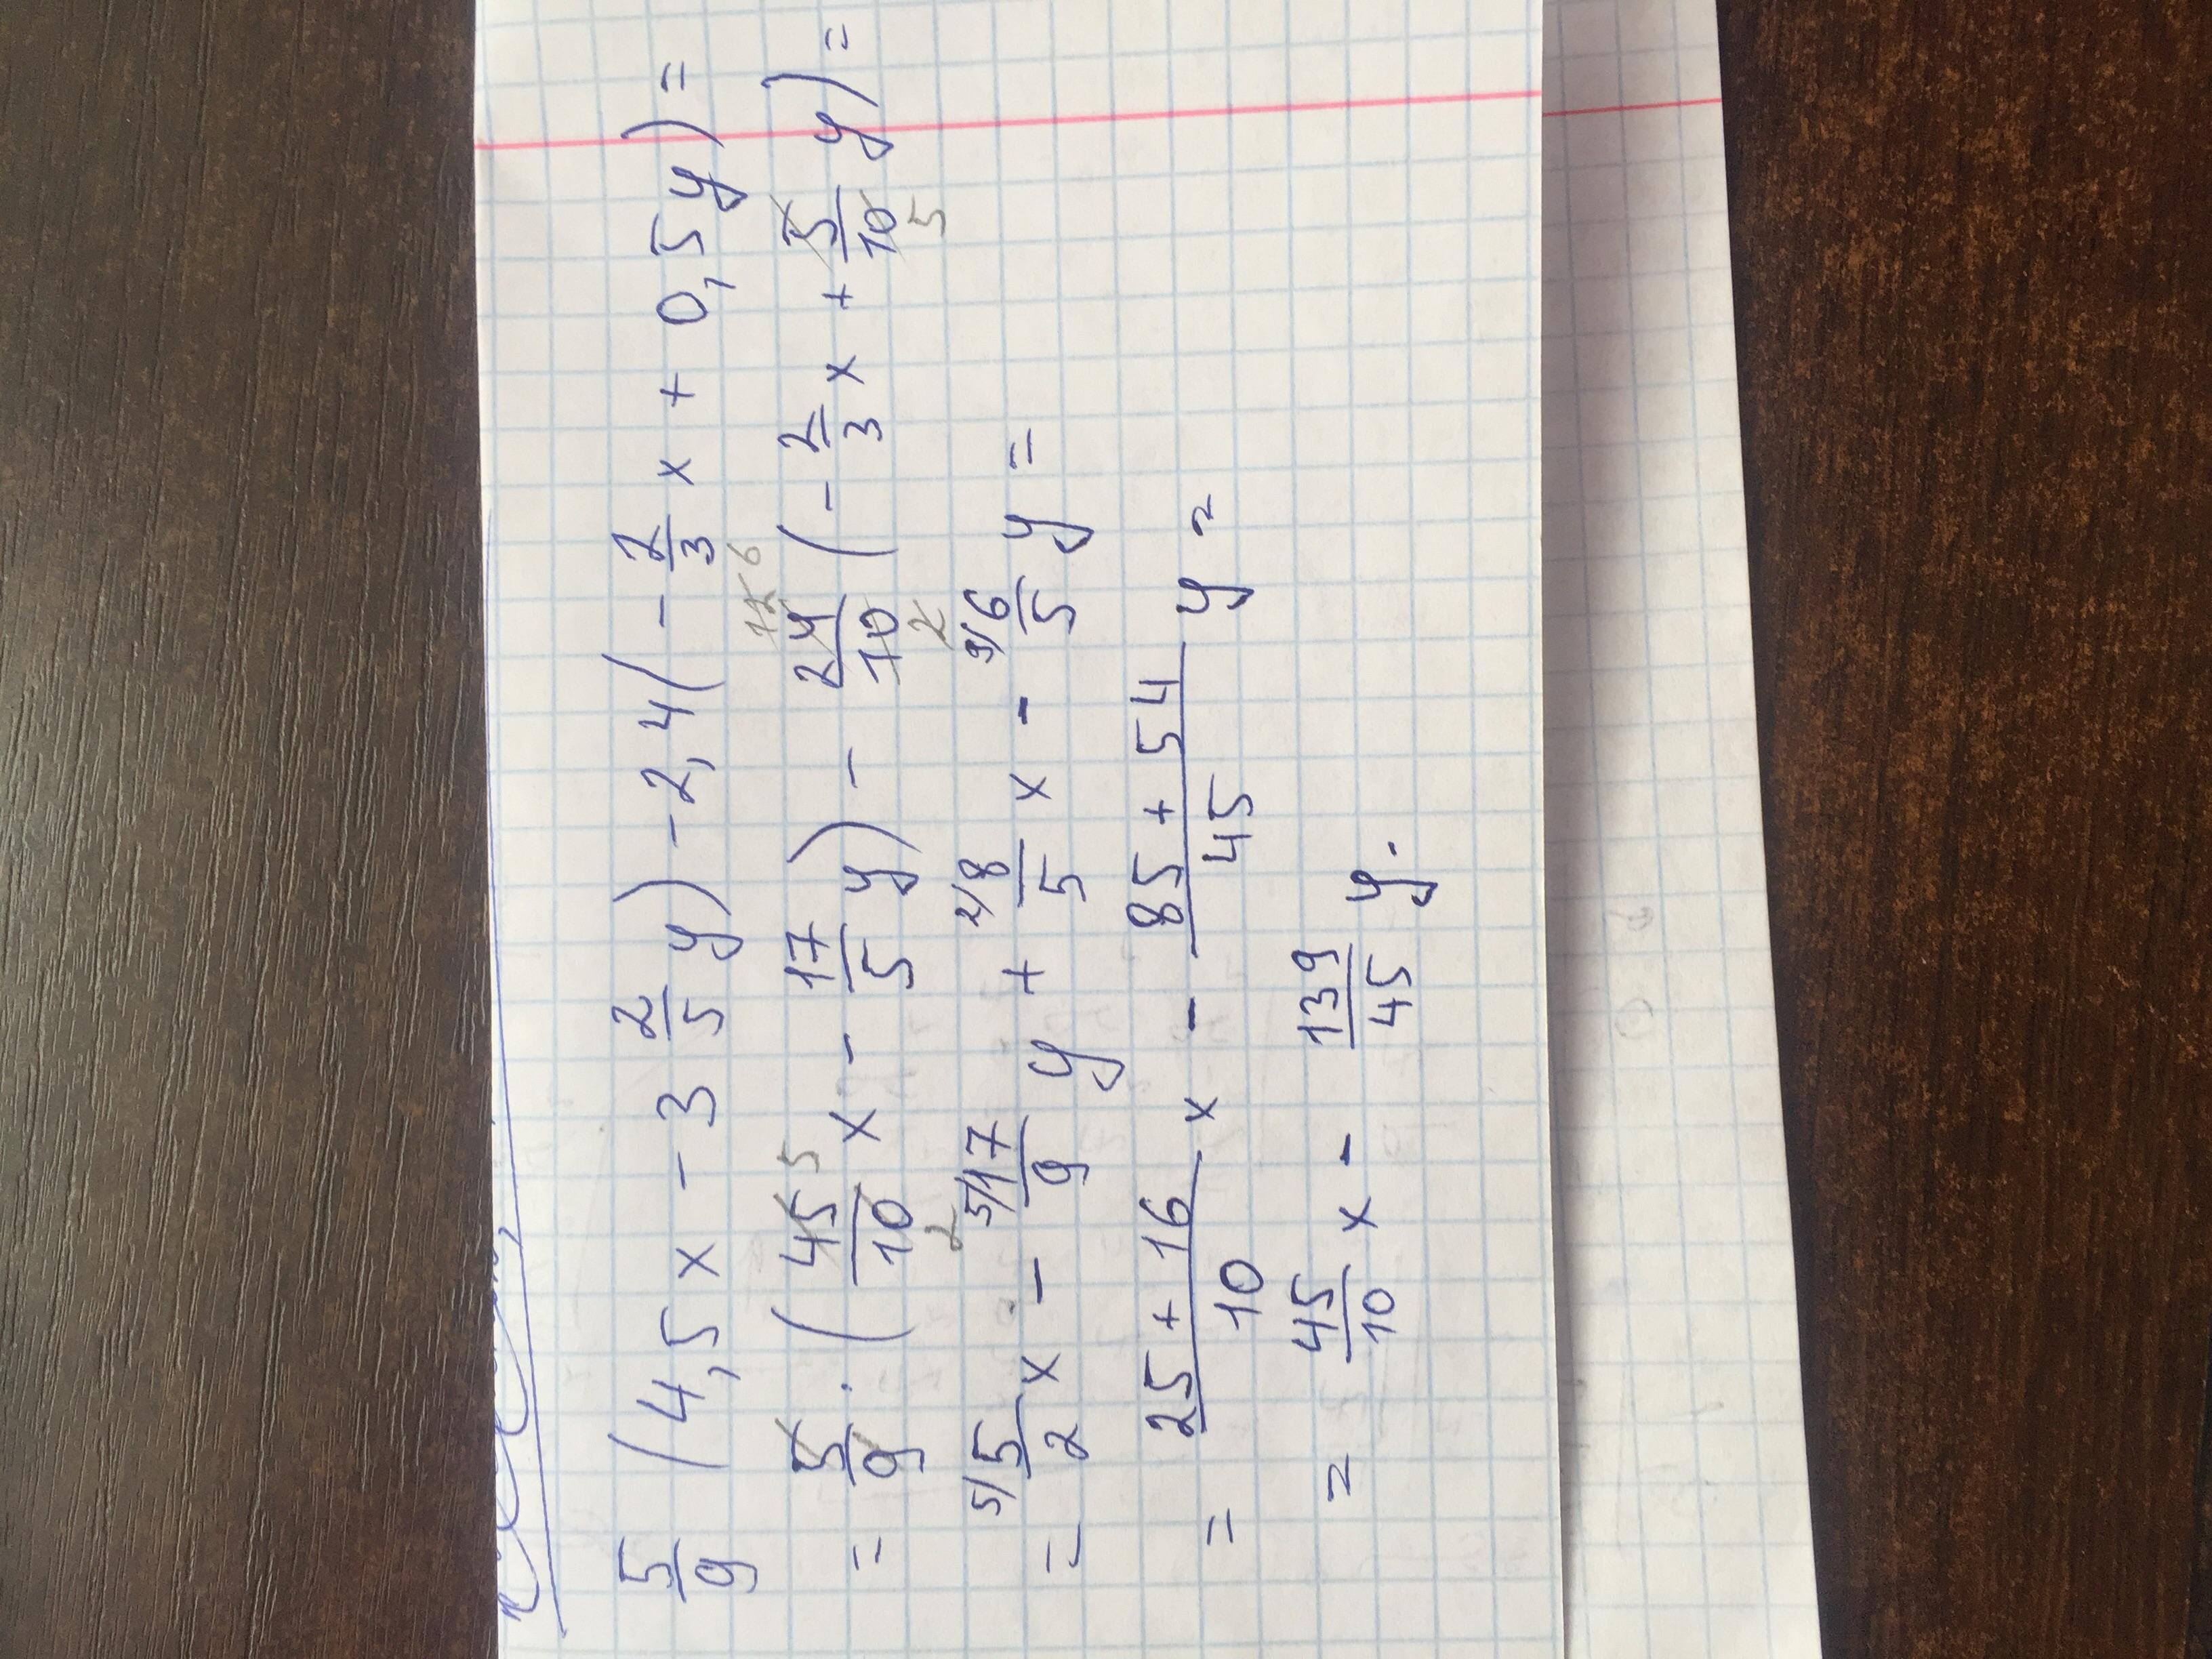 5/9 (4,5x - 3 2/5 y) - 2,4(- 2/3 x + 0,5y) =
= 5/9 · (45/10 x - 17/5 y) - 24/10 (- 2/3 x + 5/10 y) =
= 5/2 x - 17/9 y + 8/5 x - 6/5 y =
= (25 + 16)/10 x - (85 + 54)/45 y =
= 45/10 x - 139/45 y.